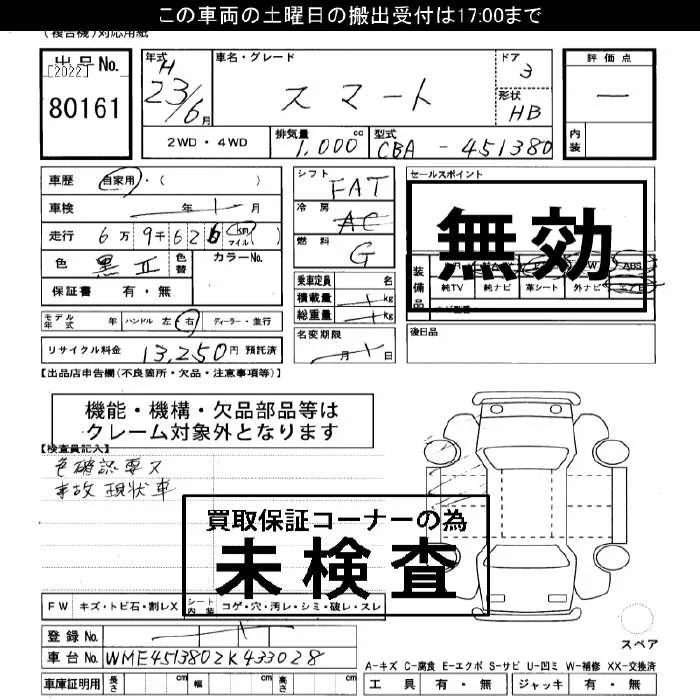 この車両の土曜日の搬出受付は17:00まで
(複合機)対応用紙
出品No.
[2022]
80161
年式
H
23/6月
車名・グレード
スマート
ドア
3
形状
HB
評価点
ー
内装
2WD・4WD
排気量 cc
1,000
型式
CBA - 451380
車歴 自家用・( )
車検 年 月
走行 6万9千626 km マイル( )
色 黒II 色替 カラーNo.
保証書 有・無
モデル年式 年 ハンドル 左 右 ディーラー・並行
リサイクル料金 13,250円 預託済
シフト FAT
冷房 AC
燃料 G
乗車定員 名
積載量 kg
総重量 kg
名変期限
月 日
セールスポイント
無効
装備品
ABS
純TV 純ナビ 革シート 外ナビ エアB
後日品
【出品店申告欄(不良箇所・欠品・注意事項等)】
機能・機構・欠品部品等は
クレーム対象外となります
【検査員記入】
色確認要ス
事故現状車
買取保証コーナーの為
未検査
FW キズ・トビ石・割レX シート内装 コゲ・穴・汚レ・シミ・破レ・スレ
登録No.
車台No. WME4513802K433028
車庫証明用 長さ cm 幅 cm 高さ cm
スペア
A-キズ C-腐食 E-エクボ S-サビ U-凹ミ W-補修 XX-交換済
工具 有・無 ジャッキ 有・無